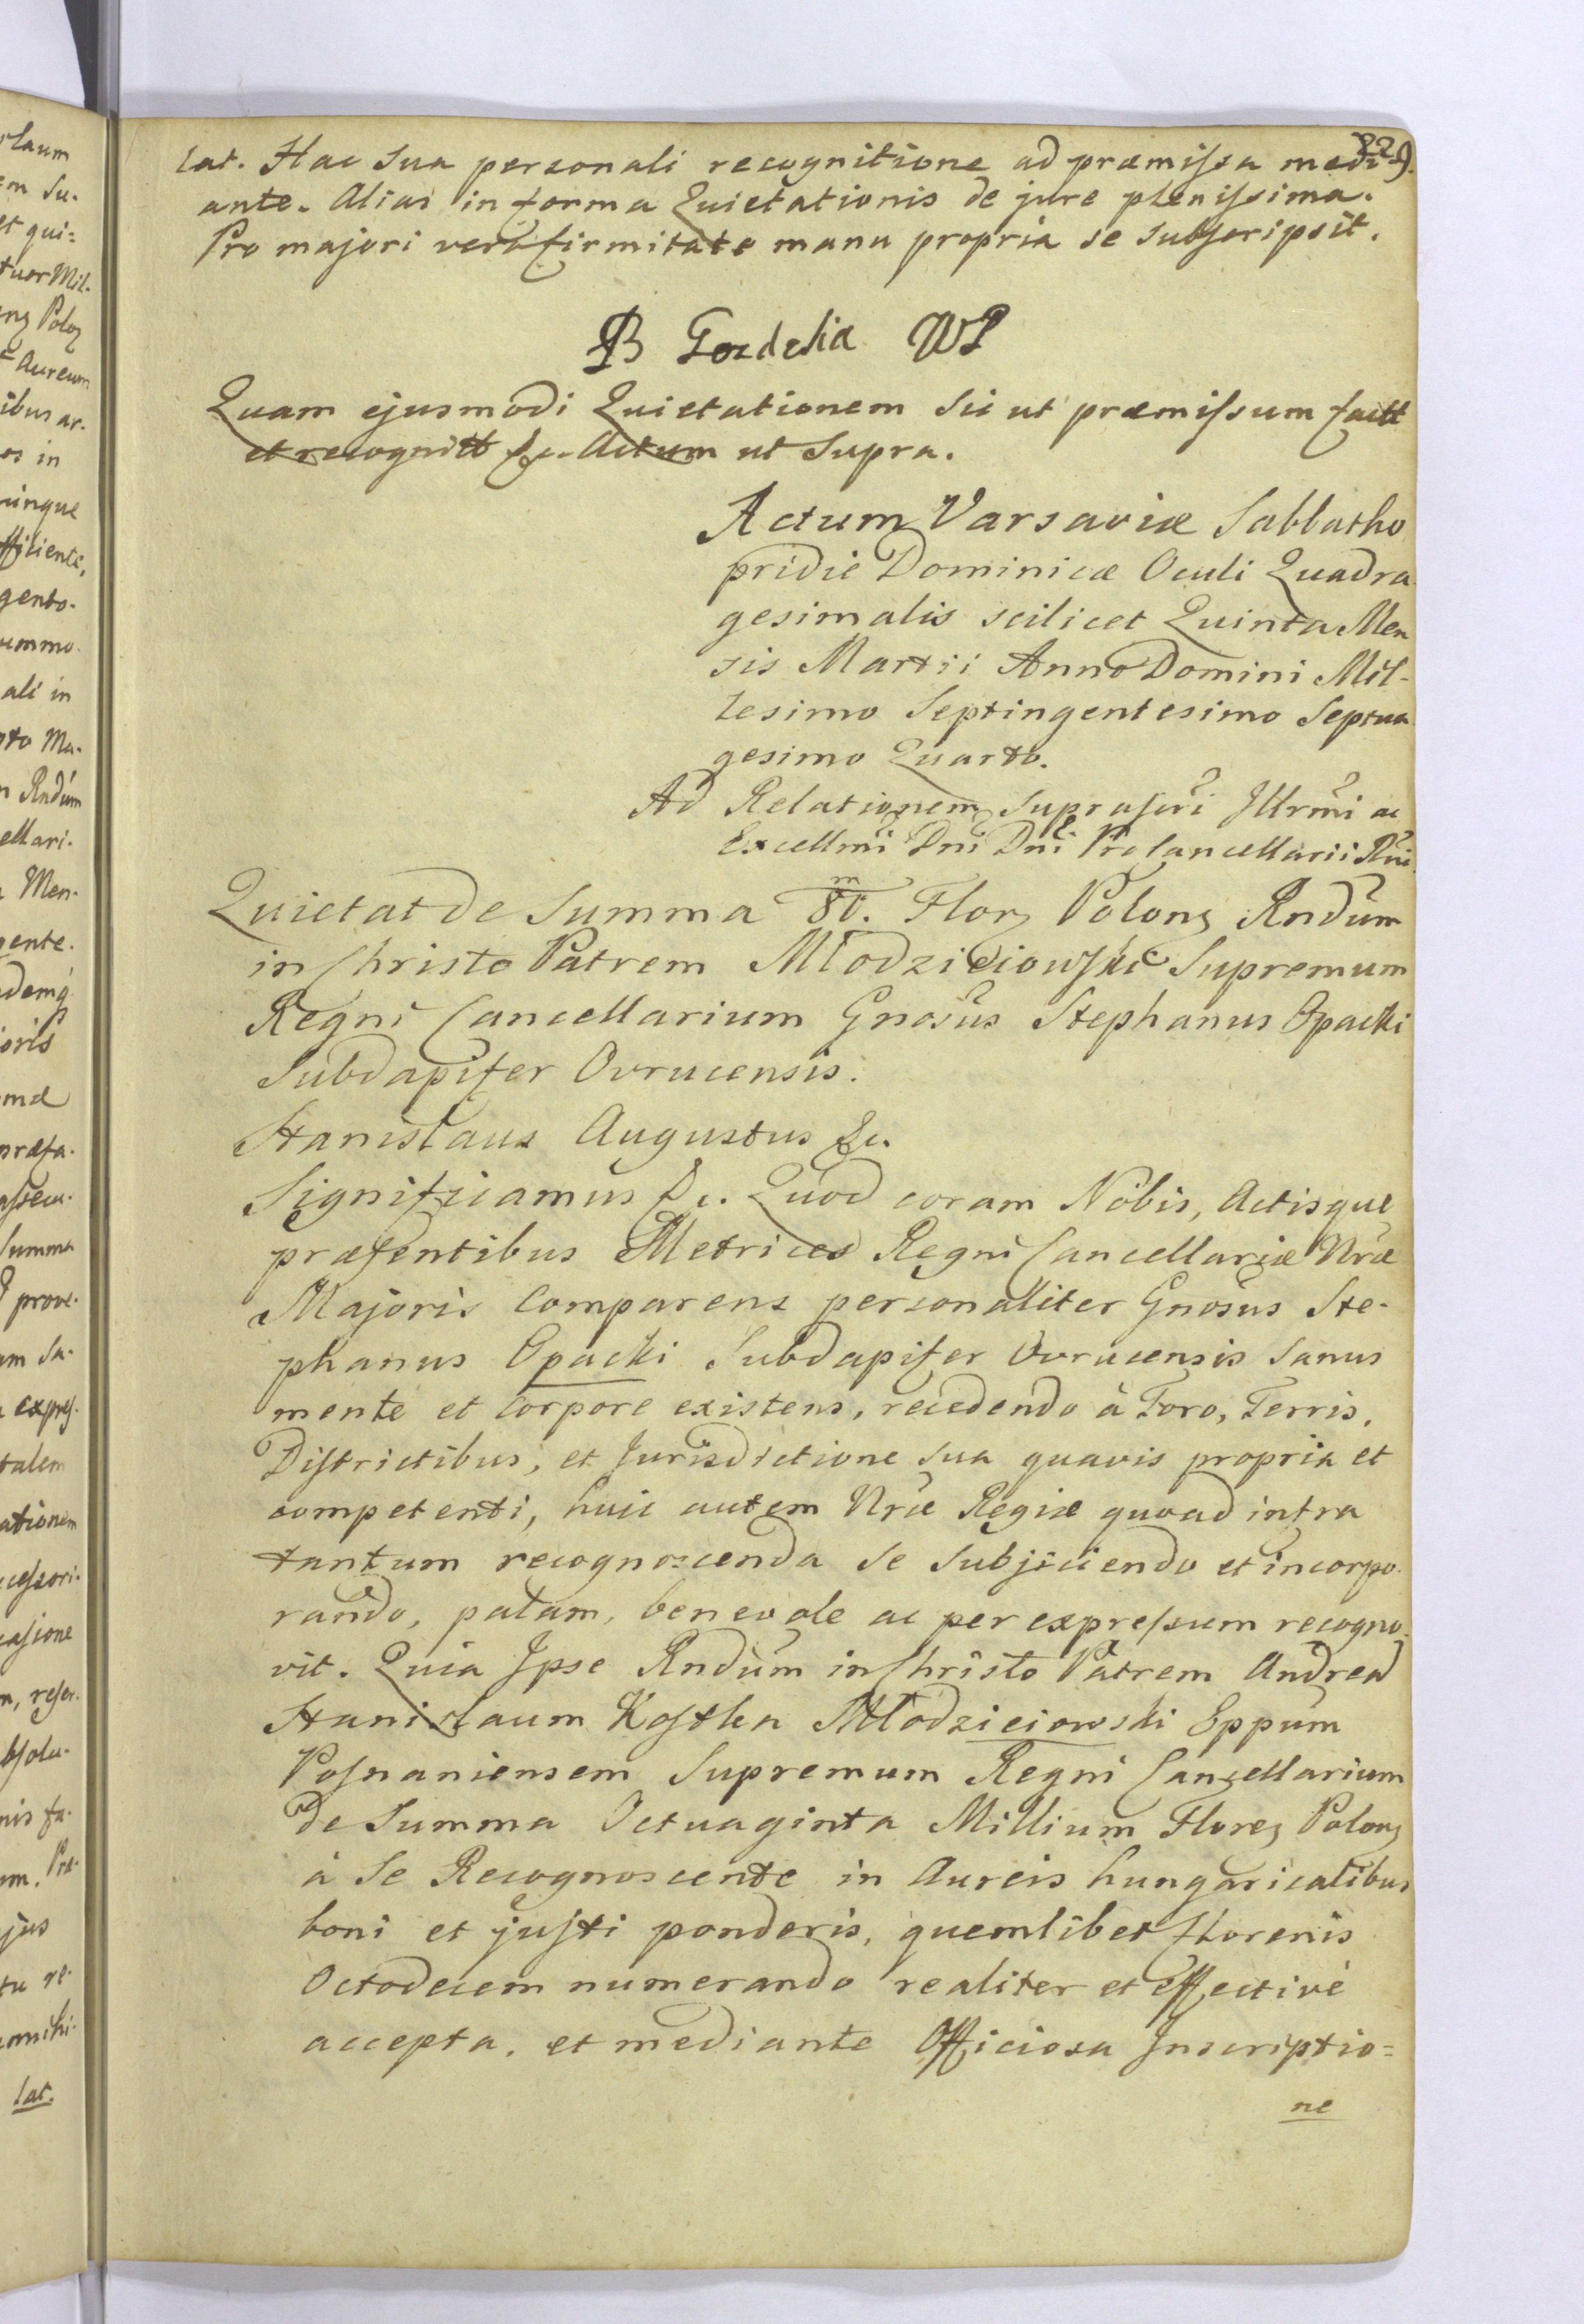 229.
lat. Hac Sua personali recognitione ad præmissa medi-
ante. Alias in forma Quietationis de jure plenissima.
Pro majori vero firmitate manu propria se subscripsit.
Quam ejusmodi Quietationem sic ut præmissum factt
et recognitt &c. Actum ut Supra.
Actum Varsaviæ Sabbatho
pridie Dominicæ Oculi Quadra
gesimalis scilicet Quinta Men
sis Martii Anno Domini Mil-
lesimo Septingentesimo Septua
gesimo Quarto.
Ad Relationem Suprascri Illrmi ac
Excellmi Dni Dni Procancellarii Rni
Quietat de Summa 80.m Flor Polon Rndum
in Christo Patrem Młodzieiowski Supremum
Regni Cancellarium Gnosus Stephanus Opacki
Subdapifer Ovrucensis.
Stanislaus Augustus &c.
Significamus &c. Quod coram Nobis, Actisque
præsentibus Metrices Regni Cancellariæ Nræ
Majoris Comparens personaliter Gnosus Ste-
phanus Opacki Subdapifer Ovrucensis sanus
mente et corpore existens, recedendo à Foro, Terris,
Districtibus, et Jurisdictione sua quavis propria et
competenti, huic autem Nræ Regiæ quoad infra
tantum recognoscenda se subjiciendo et incorpo-
rando, palam, benevole ac per expressum recogno-
vit. Quia Ipse Rndum in Christo Patrem Andream
Stanislaum Kostka Młodzieiowski Eppum
Posnaniensem Supremum Regni Cancellarium
de Summa Octuaginta Millium Floren Polon
à Se Recognoscente in Aureis hungaricalibus
boni et justi ponderis, quemlibet florenis
Octodecem numerando realiter et effectivè
accepta, et mediante Officiosa Inscriptio=
ne